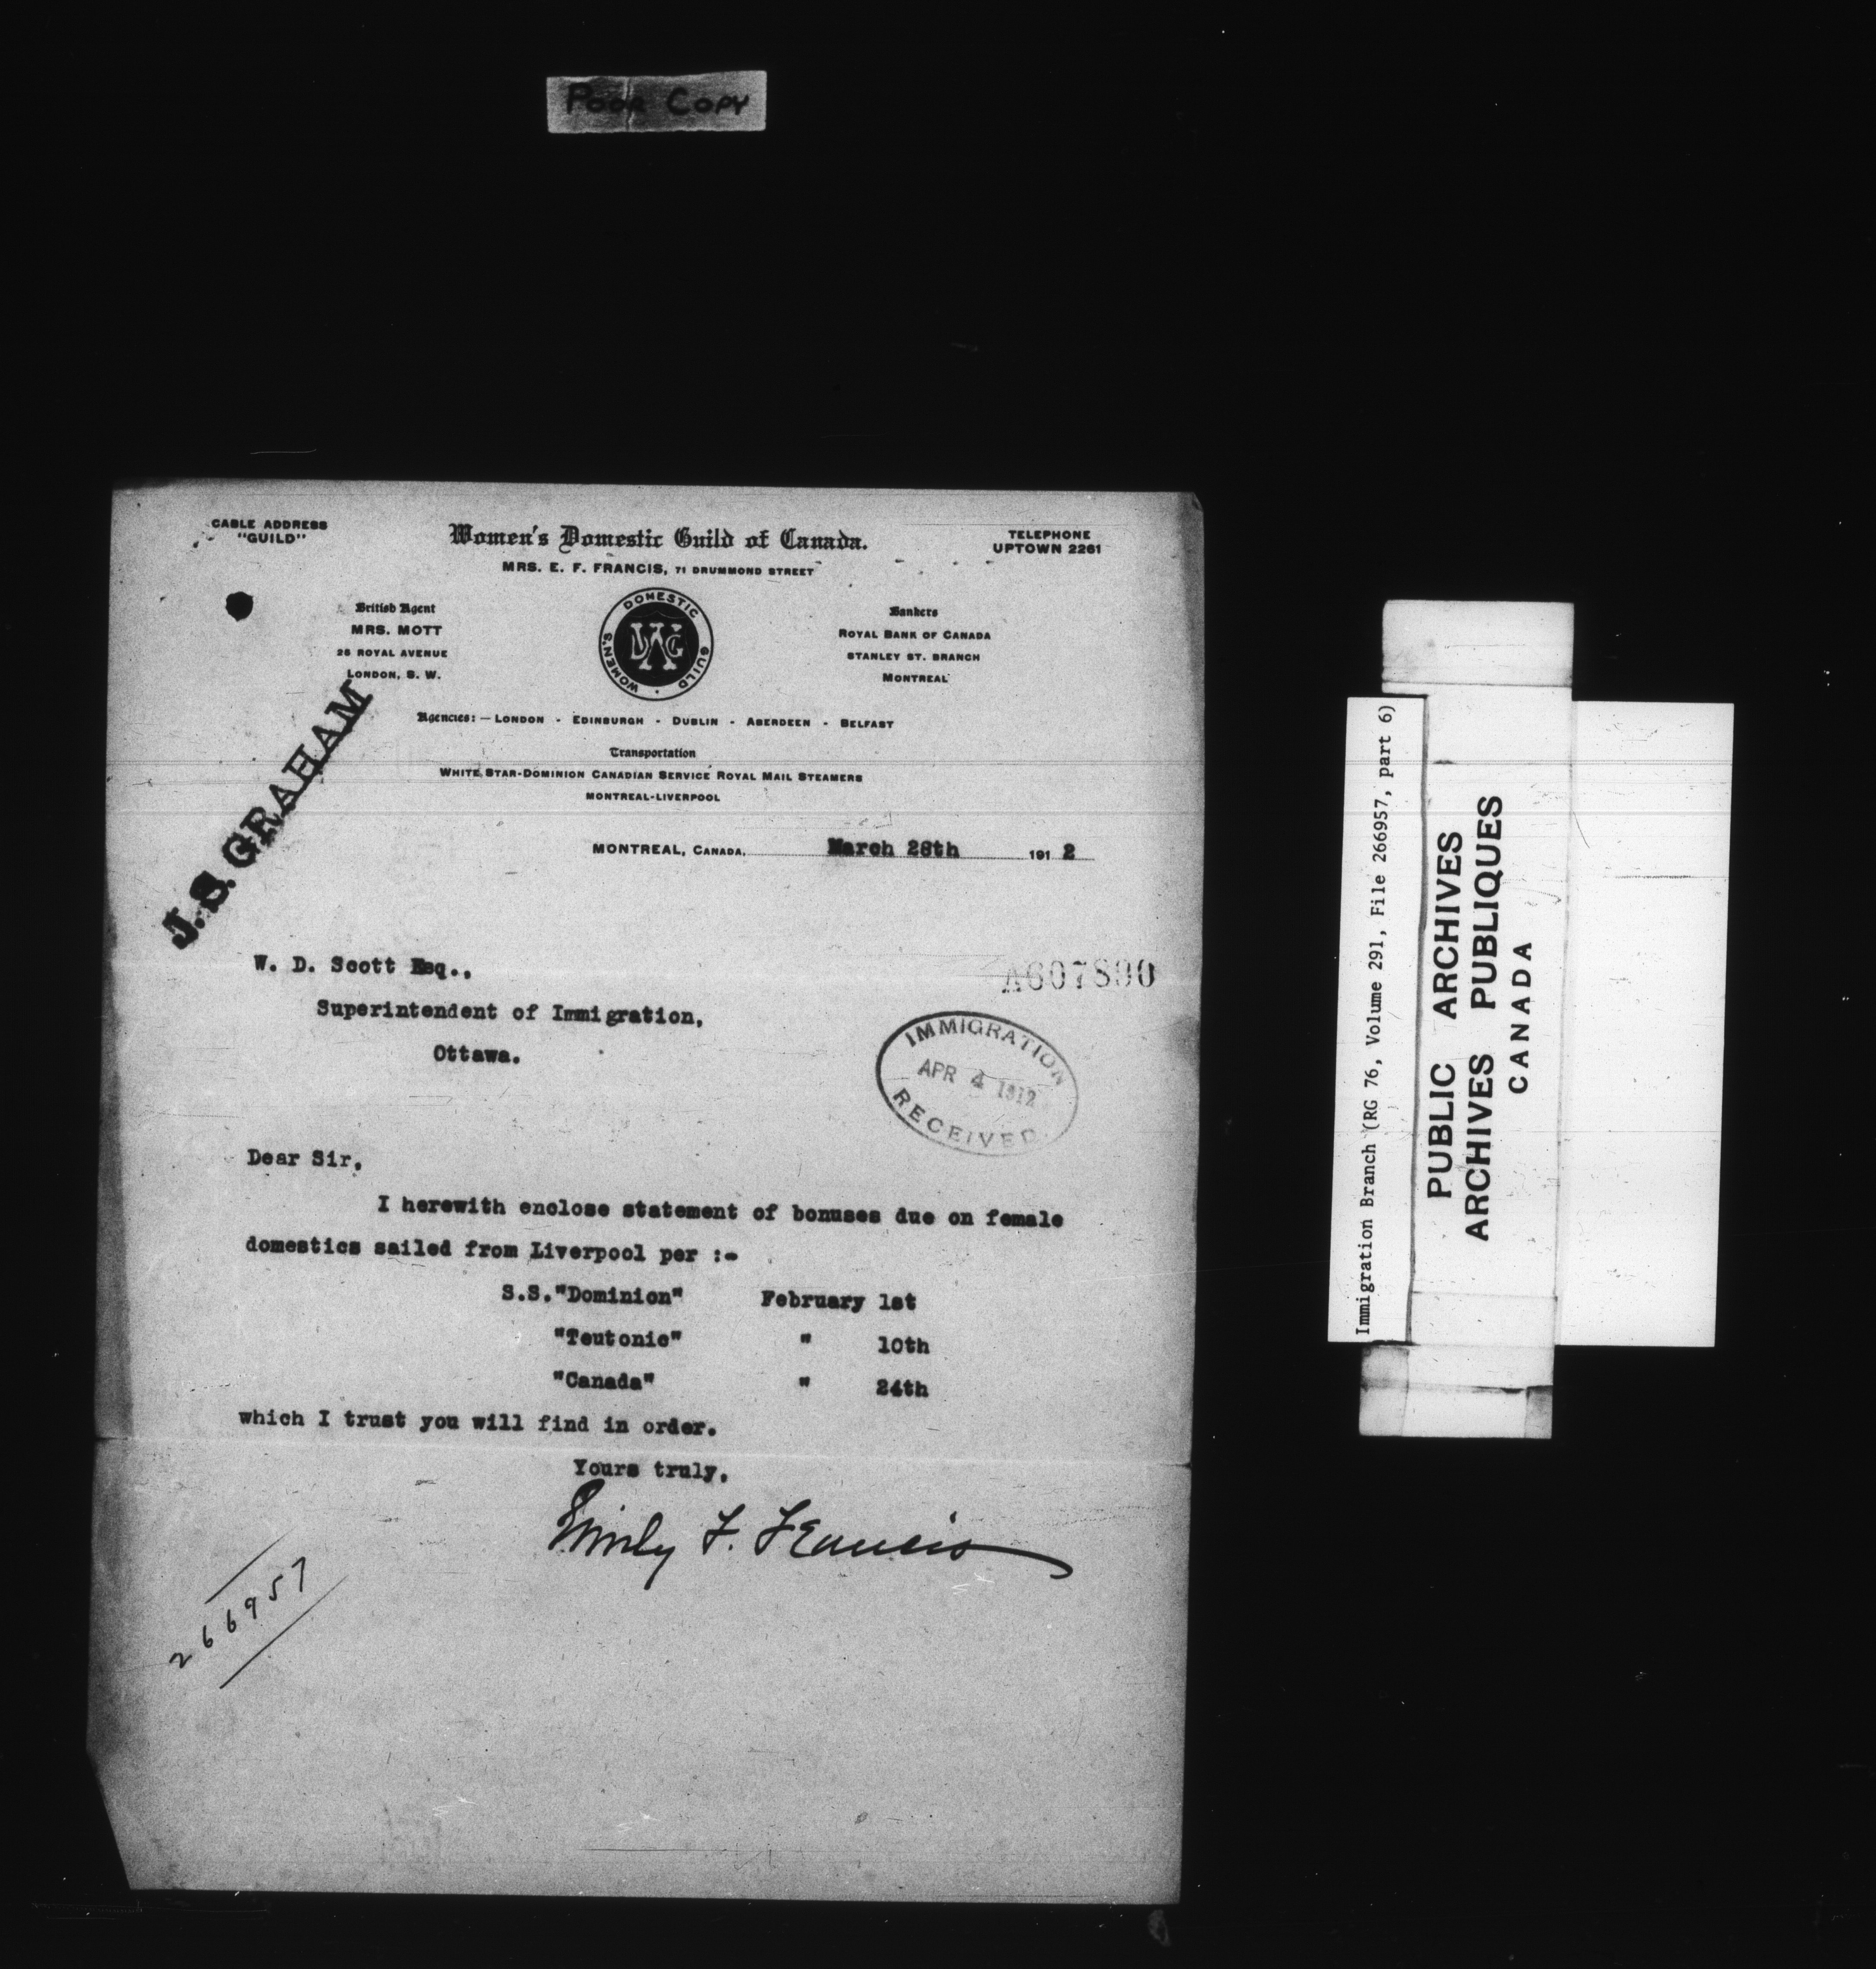 POOR COPY
CABLE ADDRESS
"GUILD"
Women's Domestic Guild of Canada.
MRS. E. F. FRANCIS, 71 DRUMMOND STREET
TELEPHONE
UPTOWN 2261
British Agent
MRS. MOTT
25 ROYAL AVENUE
LONDON, S. W.
WOMEN'S DOMESTIC GUILD
WDG
Bankers
ROYAL BANK OF CANADA
STANLEY ST. BRANCH
MONTREAL
Agencies:—LONDON - EDINBURGH - DUBLIN - ABERDEEN - BELFAST
Transportation
WHITE STAR-DOMINION CANADIAN SERVICE ROYAL MAIL STEAMERS
MONTREAL-LIVERPOOL
J.S. GRAHAM
MONTREAL, CANADA, March 28th 1912
W. D. Scott Esq.,
Superintendent of Immigration,
Ottawa.
A607890
IMMIGRATION
APR 4 1912
RECEIVED
Dear Sir,
I herewith enclose statement of bonuses due on female
domestics sailed from Liverpool per :-
S.S."Dominion" February 1st
"Teutonic" " 10th
"Canada" " 24th
which I trust you will find in order.
Yours truly,
Emily F. Francis
266957
Immigration Branch (RG 76, Volume 291, File 266957, part 6)
PUBLIC ARCHIVES
ARCHIVES PUBLIQUES
CANADA